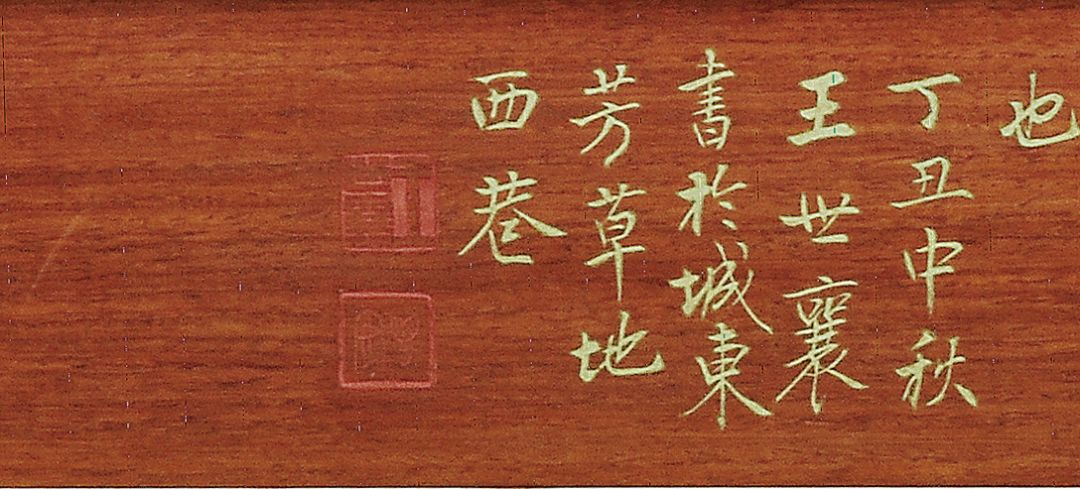 也
丁丑中秋
王世襄
書於城東
芳草地
西巷